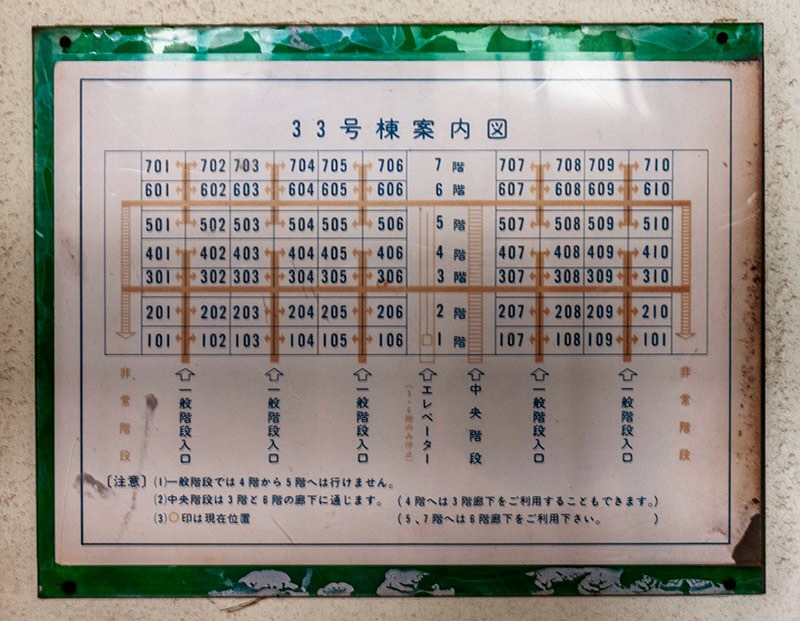 33号棟案内図
701 702 703 704 705 706 7階 707 708 709 710
601 602 603 604 605 606 6階 607 608 609 610
501 502 503 504 505 506 5階 507 508 509 510
401 402 403 404 405 406 4階 407 408 409 410
301 302 303 304 305 306 3階 307 308 309 310
201 202 203 204 205 206 2階 207 208 209 210
101 102 103 104 105 106 1階 107 108 109 101
非常階段
一般階段入口
一般階段入口
一般階段入口
エレベーター
中央階段
一般階段入口
一般階段入口
非常階段
〔注意〕(1)一般階段では4階から5階へは行けません。
(2)中央階段は3階と6階の廊下に通じます。(4階へは3階廊下をご利用することもできます。)
(3)○印は現在位置 (5、7階へは6階廊下をご利用下さい。)